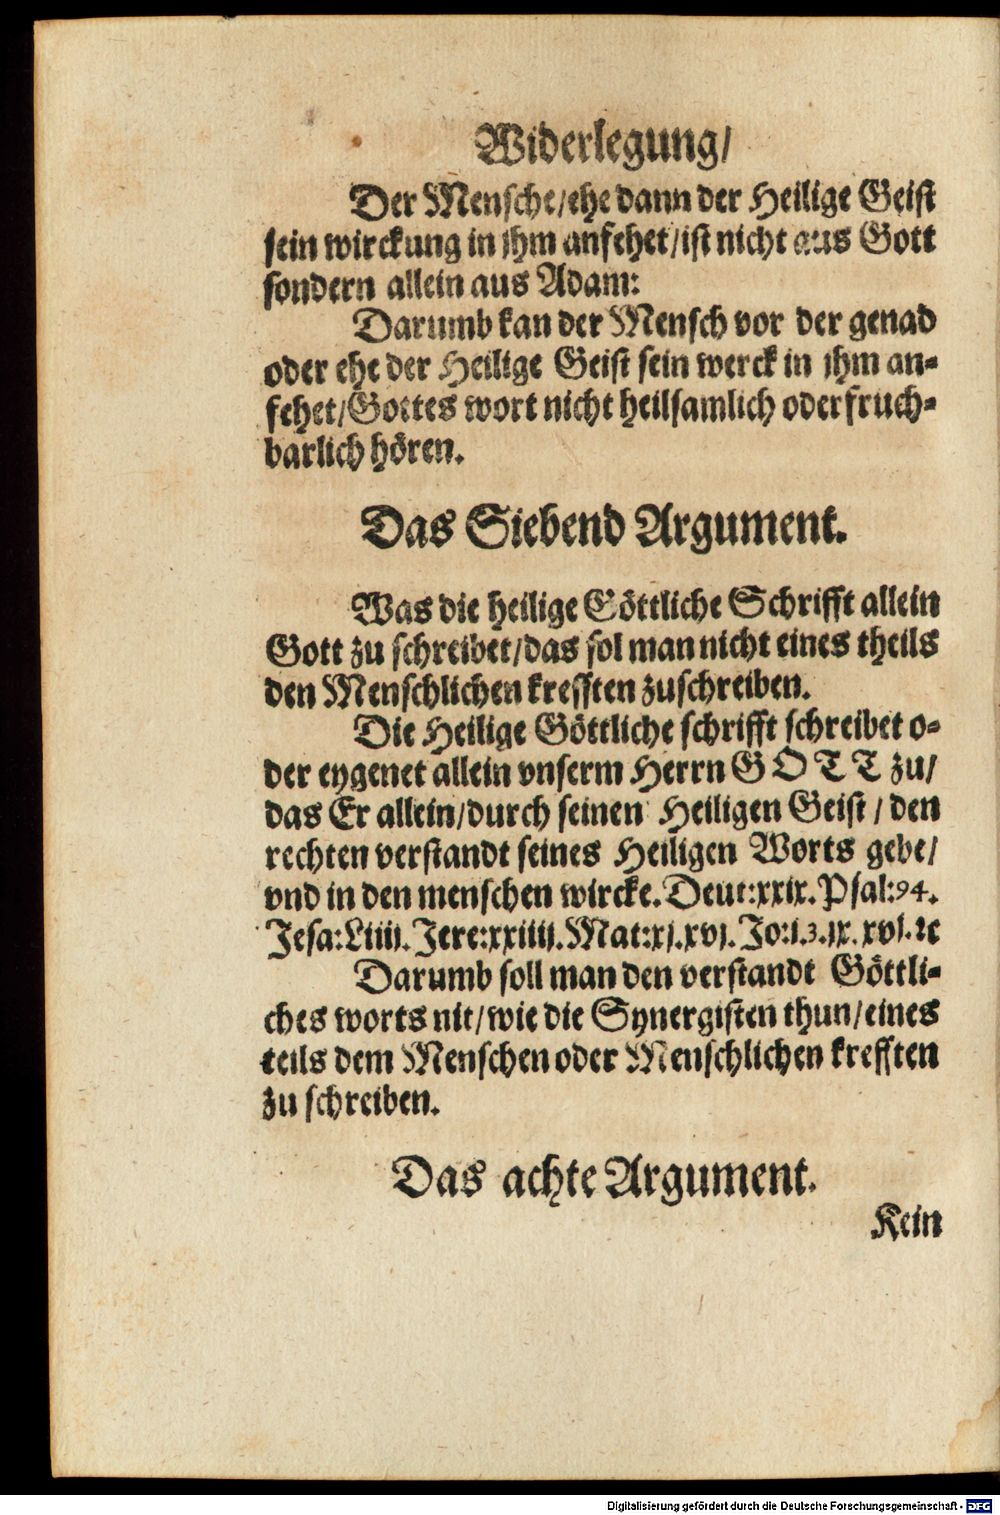 Widerlegung/
Der Mensche/ehe dann der Heilige Geist
sein wirckung in jhm anfehet/ist nicht aus Gott
sondern allein aus Adam:
Darumb kan der Mensch vor der genad
oder ehe der Heilige Geist sein werck in jhm an-
fehet/Gottes wort nicht heilsamlich oder fruch-
barlich hören.
Das Siebend Argument.
Was die heilige Göttliche Schrifft allein
Gott zu schreibet/das sol man nicht eines theils
den Menschlichen kressten zuschreiben.
Die Heilige Göttliche schrifft schreibet o-
der eygenet allein vnserm Herrn G O T T zu/
das Er allein/durch seinen Heiligen Geist / den
rechten verstandt seines Heiligen Worts gebe/
vnd in den menschen wircke. Deut:xxix. Psal:94.
Jesa:Liiij. Jere:xxiiij. Mat:xj.xvj. Jo:j.3.jx. xvj. ꝛc
Darumb soll man den verstandt Göttli-
ches worts nit/wie die Synergisten thun/eines
teils dem Menschen oder Menschlichen krefften
zu schreiben.
Das achte Argument.
Kein
Digitalisierung gefördert durch die Deutsche Forschungsgemeinschaft - DFG